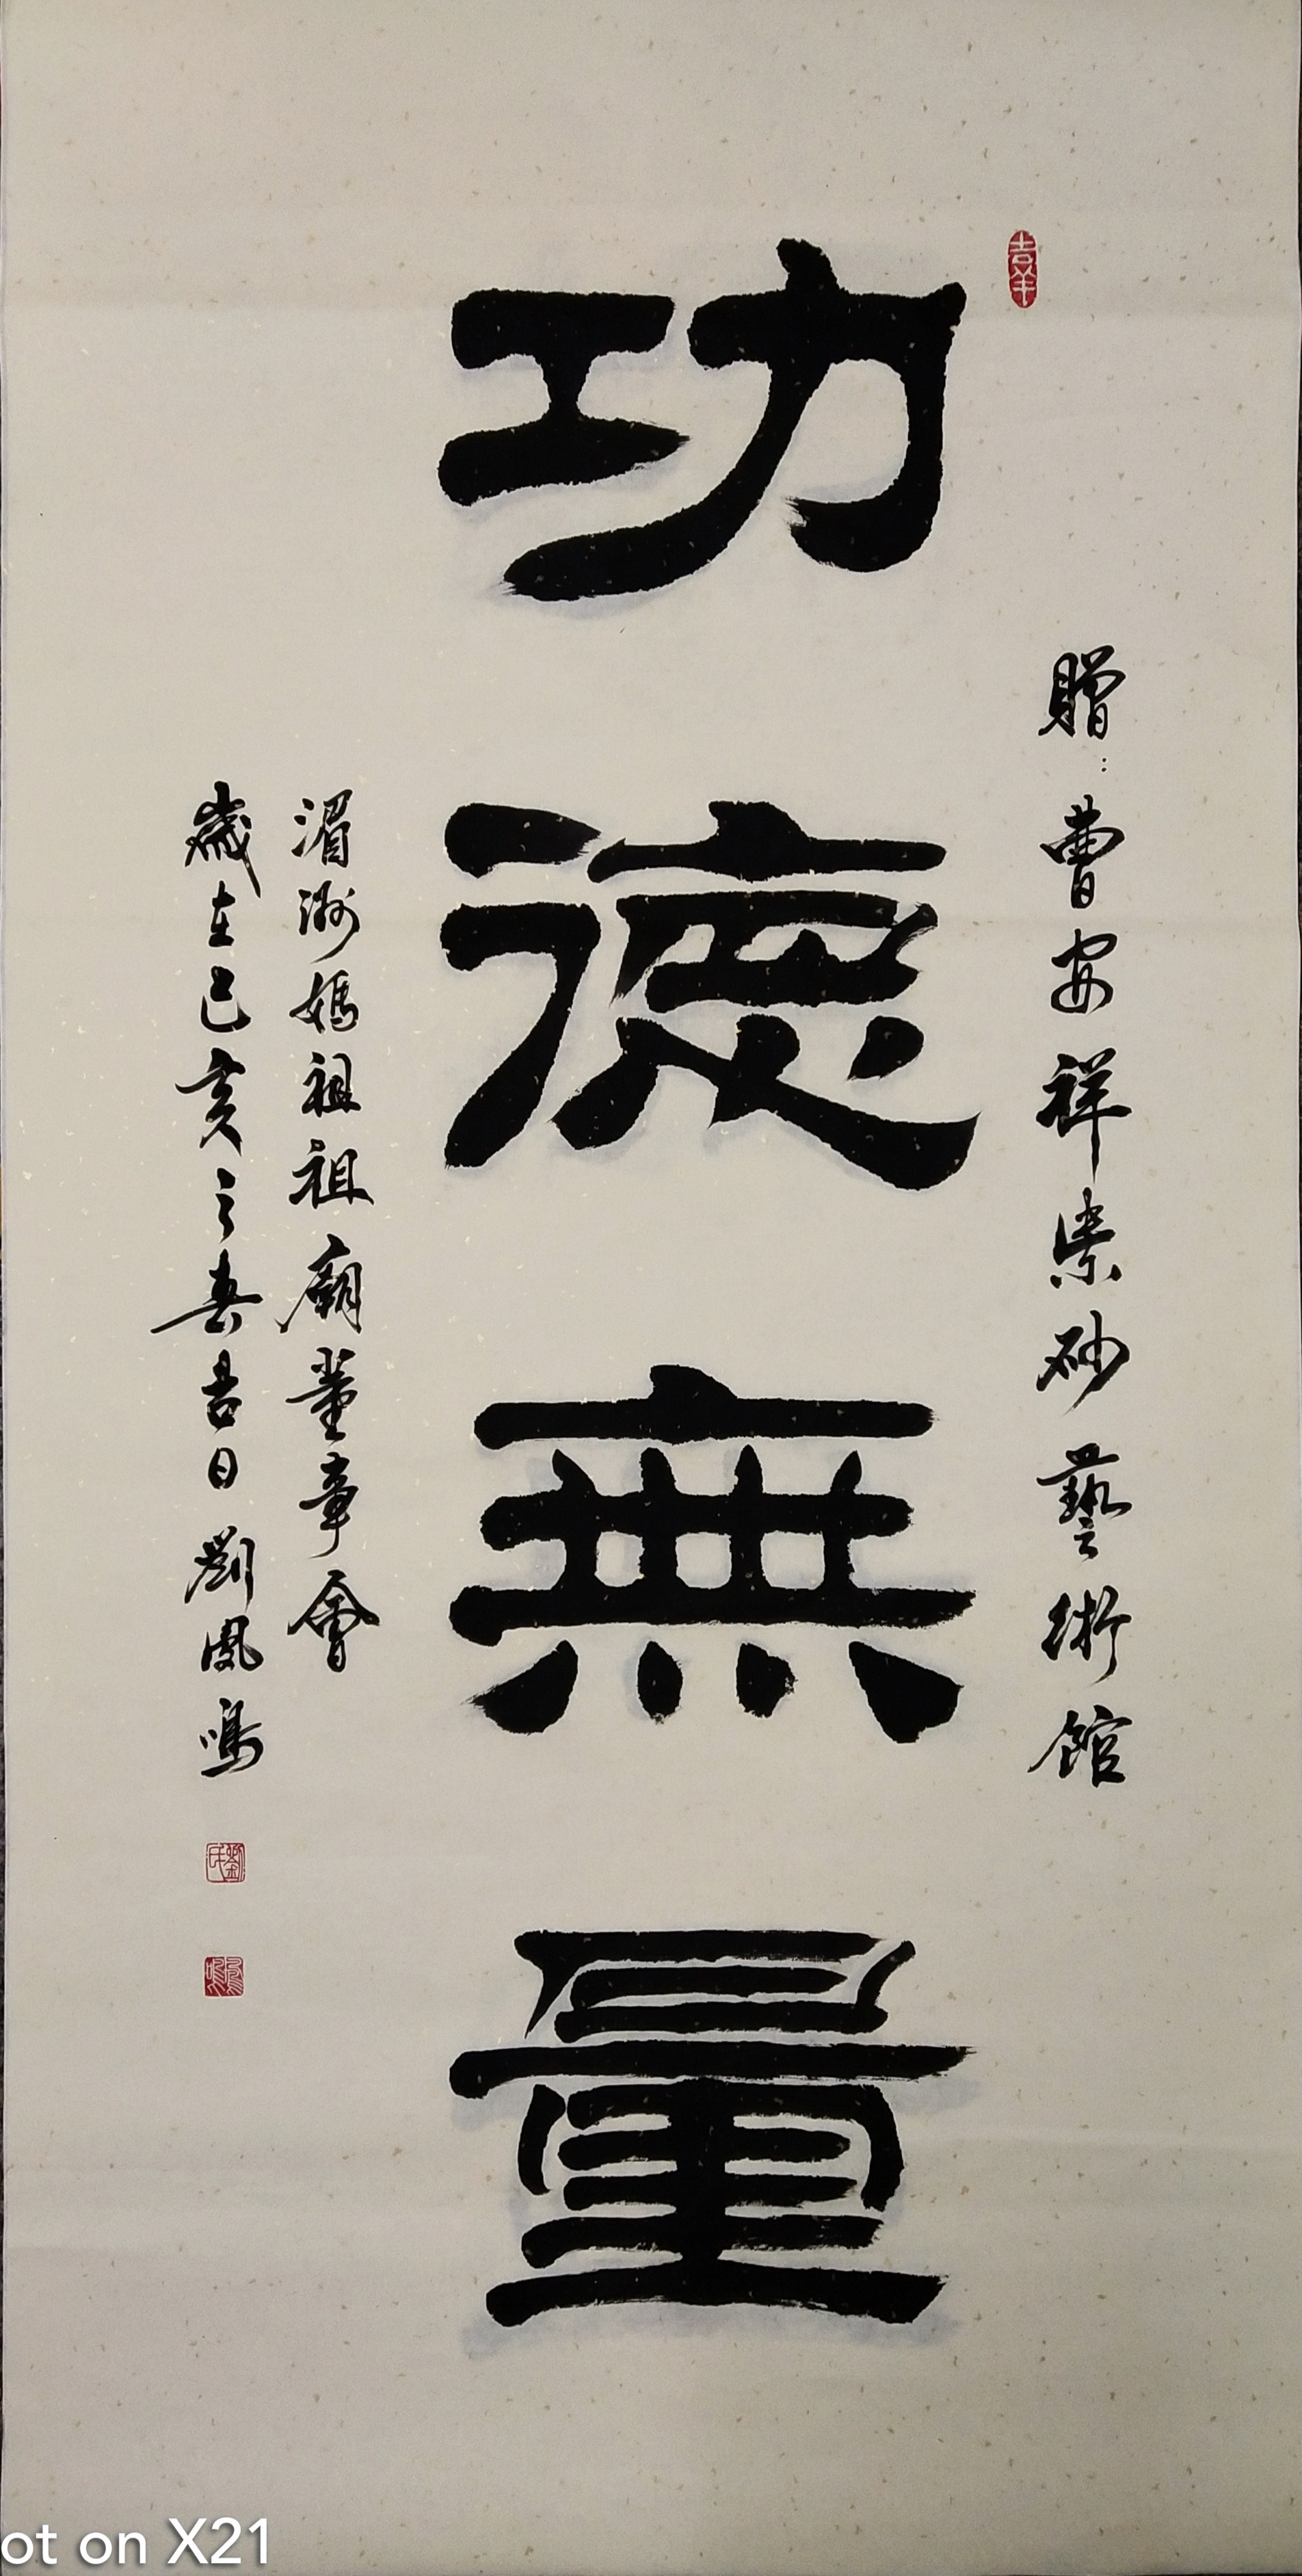 吉羊
贈：曹安祥紫砂藝術館
功德無量
湄洲媽祖祖廟董事會
歲在己亥之春吉日 劉鳳鳴
劉氏
鳳鳴
ot on X21